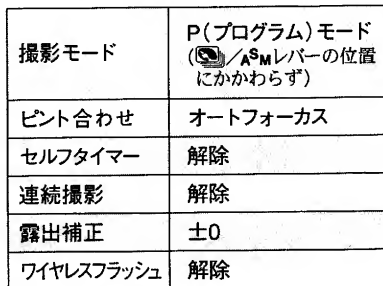 撮影モード P(プログラム)モード
(/ASMレバーの位置
にかかわらず)
ピント合わせ オートフォーカス
セルフタイマー 解除
連続撮影 解除
露出補正 ±0
ワイヤレスフラッシュ 解除